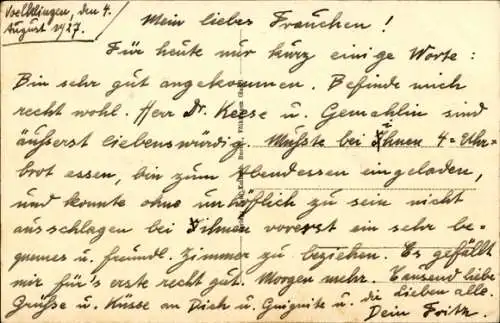 Voelklingen, den 4.
August 1927.
Mein liebes Frauchen!
Für heute nur kurz einige Worte:
Bin sehr gut angekommen. Befinde mich
recht wohl. Herr Dr. Keese u. Gemahlin sind
äußerst liebenswürdig. Mußte bei Ihnen 4=Uhr=
brot essen, bin zum Abendessen eingeladen,
und konnte ohne unhöflich zu sein nicht
ausschlagen bei Ihnen vorerst ein sehr be-
quemes u. freundl. Zimmer zu beziehen. Es gefällt
mir für's erste recht gut. Morgen mehr. Tausend liebe
Grüße u. Küsse an Dich u. u. die Lieben alle.
Dein Fritz.